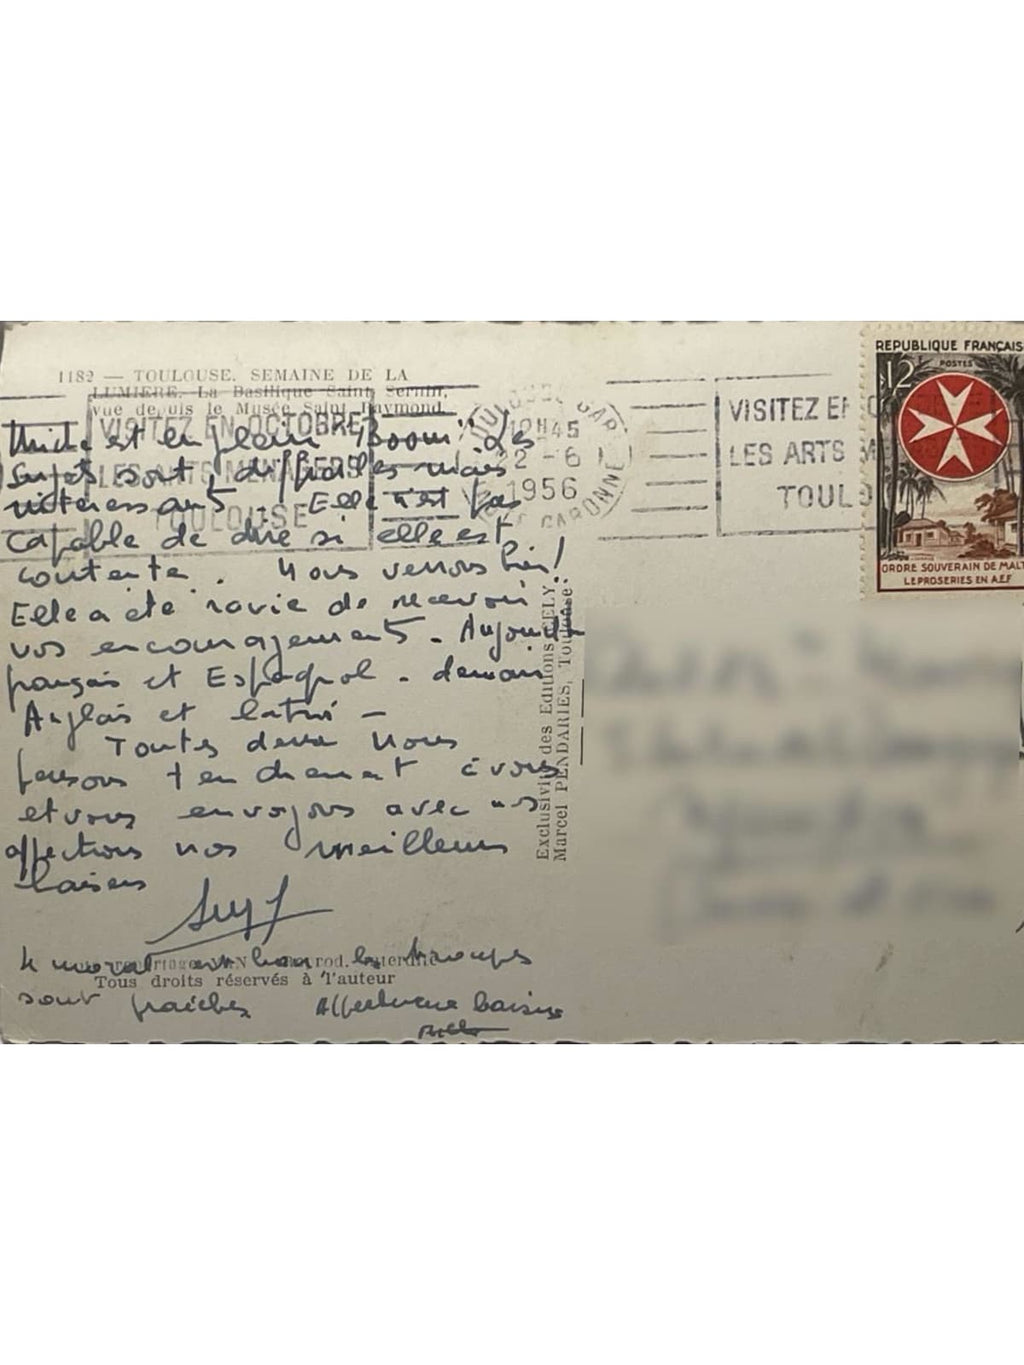 1182 — TOULOUSE. SEMAINE DE LA
LUMIERE. La Basilique Saint Sernin,
vue depuis le Musée Saint Raymond.
VISITEZ EN OCTOBRE
LES ARTS MENAGERS
TOULOUSE
est en plein "Boom" Les
sujets sont difficiles mais
interessants. Elle n'est pas
capable de dire si elle est
contente. Nous verrons bien!
Elle a été ravie de recevoir
vos encouragements. Aujourd'h
français et Espagnol. demain
Anglais et latin —
Toutes deux nous
pensons tendrement à vous
et vous envoyons avec nos
affections nos meilleurs
baisers
Le moral est bon les troupes
rod. interdite
Tous droits réservés à l'auteur
sont fraîches Affectueux baisers
Exclusivité des Editions ELY:
Marcel PENDARIES, Toulouse.
TOULOUSE GAR
12H45
2-6
1956
HTE GARONNE
VISITEZ EN O
LES ARTS M
TOULO
REPUBLIQUE FRANÇAIS
POSTES
12
ORDRE SOUVERAIN DE MALT
LÉPROSERIES EN A.E.F